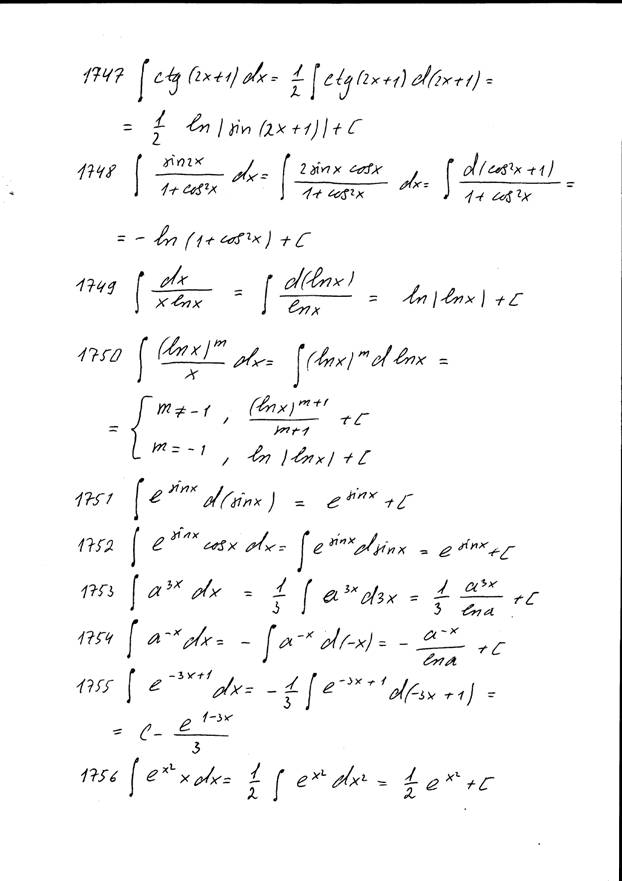 1747 ∫ ctg (2x+1) dx = 1/2 ∫ ctg (2x+1) d(2x+1) =
= 1/2 ln |sin (2x+1)| + C
1748 ∫ sin2x/(1+cos²x) dx = ∫ 2sinx cosx/(1+cos²x) dx = ∫ d(cos²x+1)/(1+cos²x) =
= - ln (1+cos²x) + C
1749 ∫ dx/(x lnx) = ∫ d(lnx)/lnx = ln |lnx| + C
1750 ∫ (lnx)^m/x dx = ∫ (lnx)^m d lnx =
= { m ≠ -1, (lnx)^(m+1)/(m+1) + C
m = -1, ln |lnx| + C
1751 ∫ e^(sinx) d(sinx) = e^(sinx) + C
1752 ∫ e^(sinx) cosx dx = ∫ e^(sinx) dsinx = e^(sinx) + C
1753 ∫ a^(3x) dx = 1/3 ∫ a^(3x) d3x = 1/3 a^(3x)/lna + C
1754 ∫ a^(-x) dx = - ∫ a^(-x) d(-x) = - a^(-x)/lna + C
1755 ∫ e^(-3x+1) dx = -1/3 ∫ e^(-3x+1) d(-3x+1) =
= C - e^(1-3x)/3
1756 ∫ e^(x²) x dx = 1/2 ∫ e^(x²) dx² = 1/2 e^(x²) + C